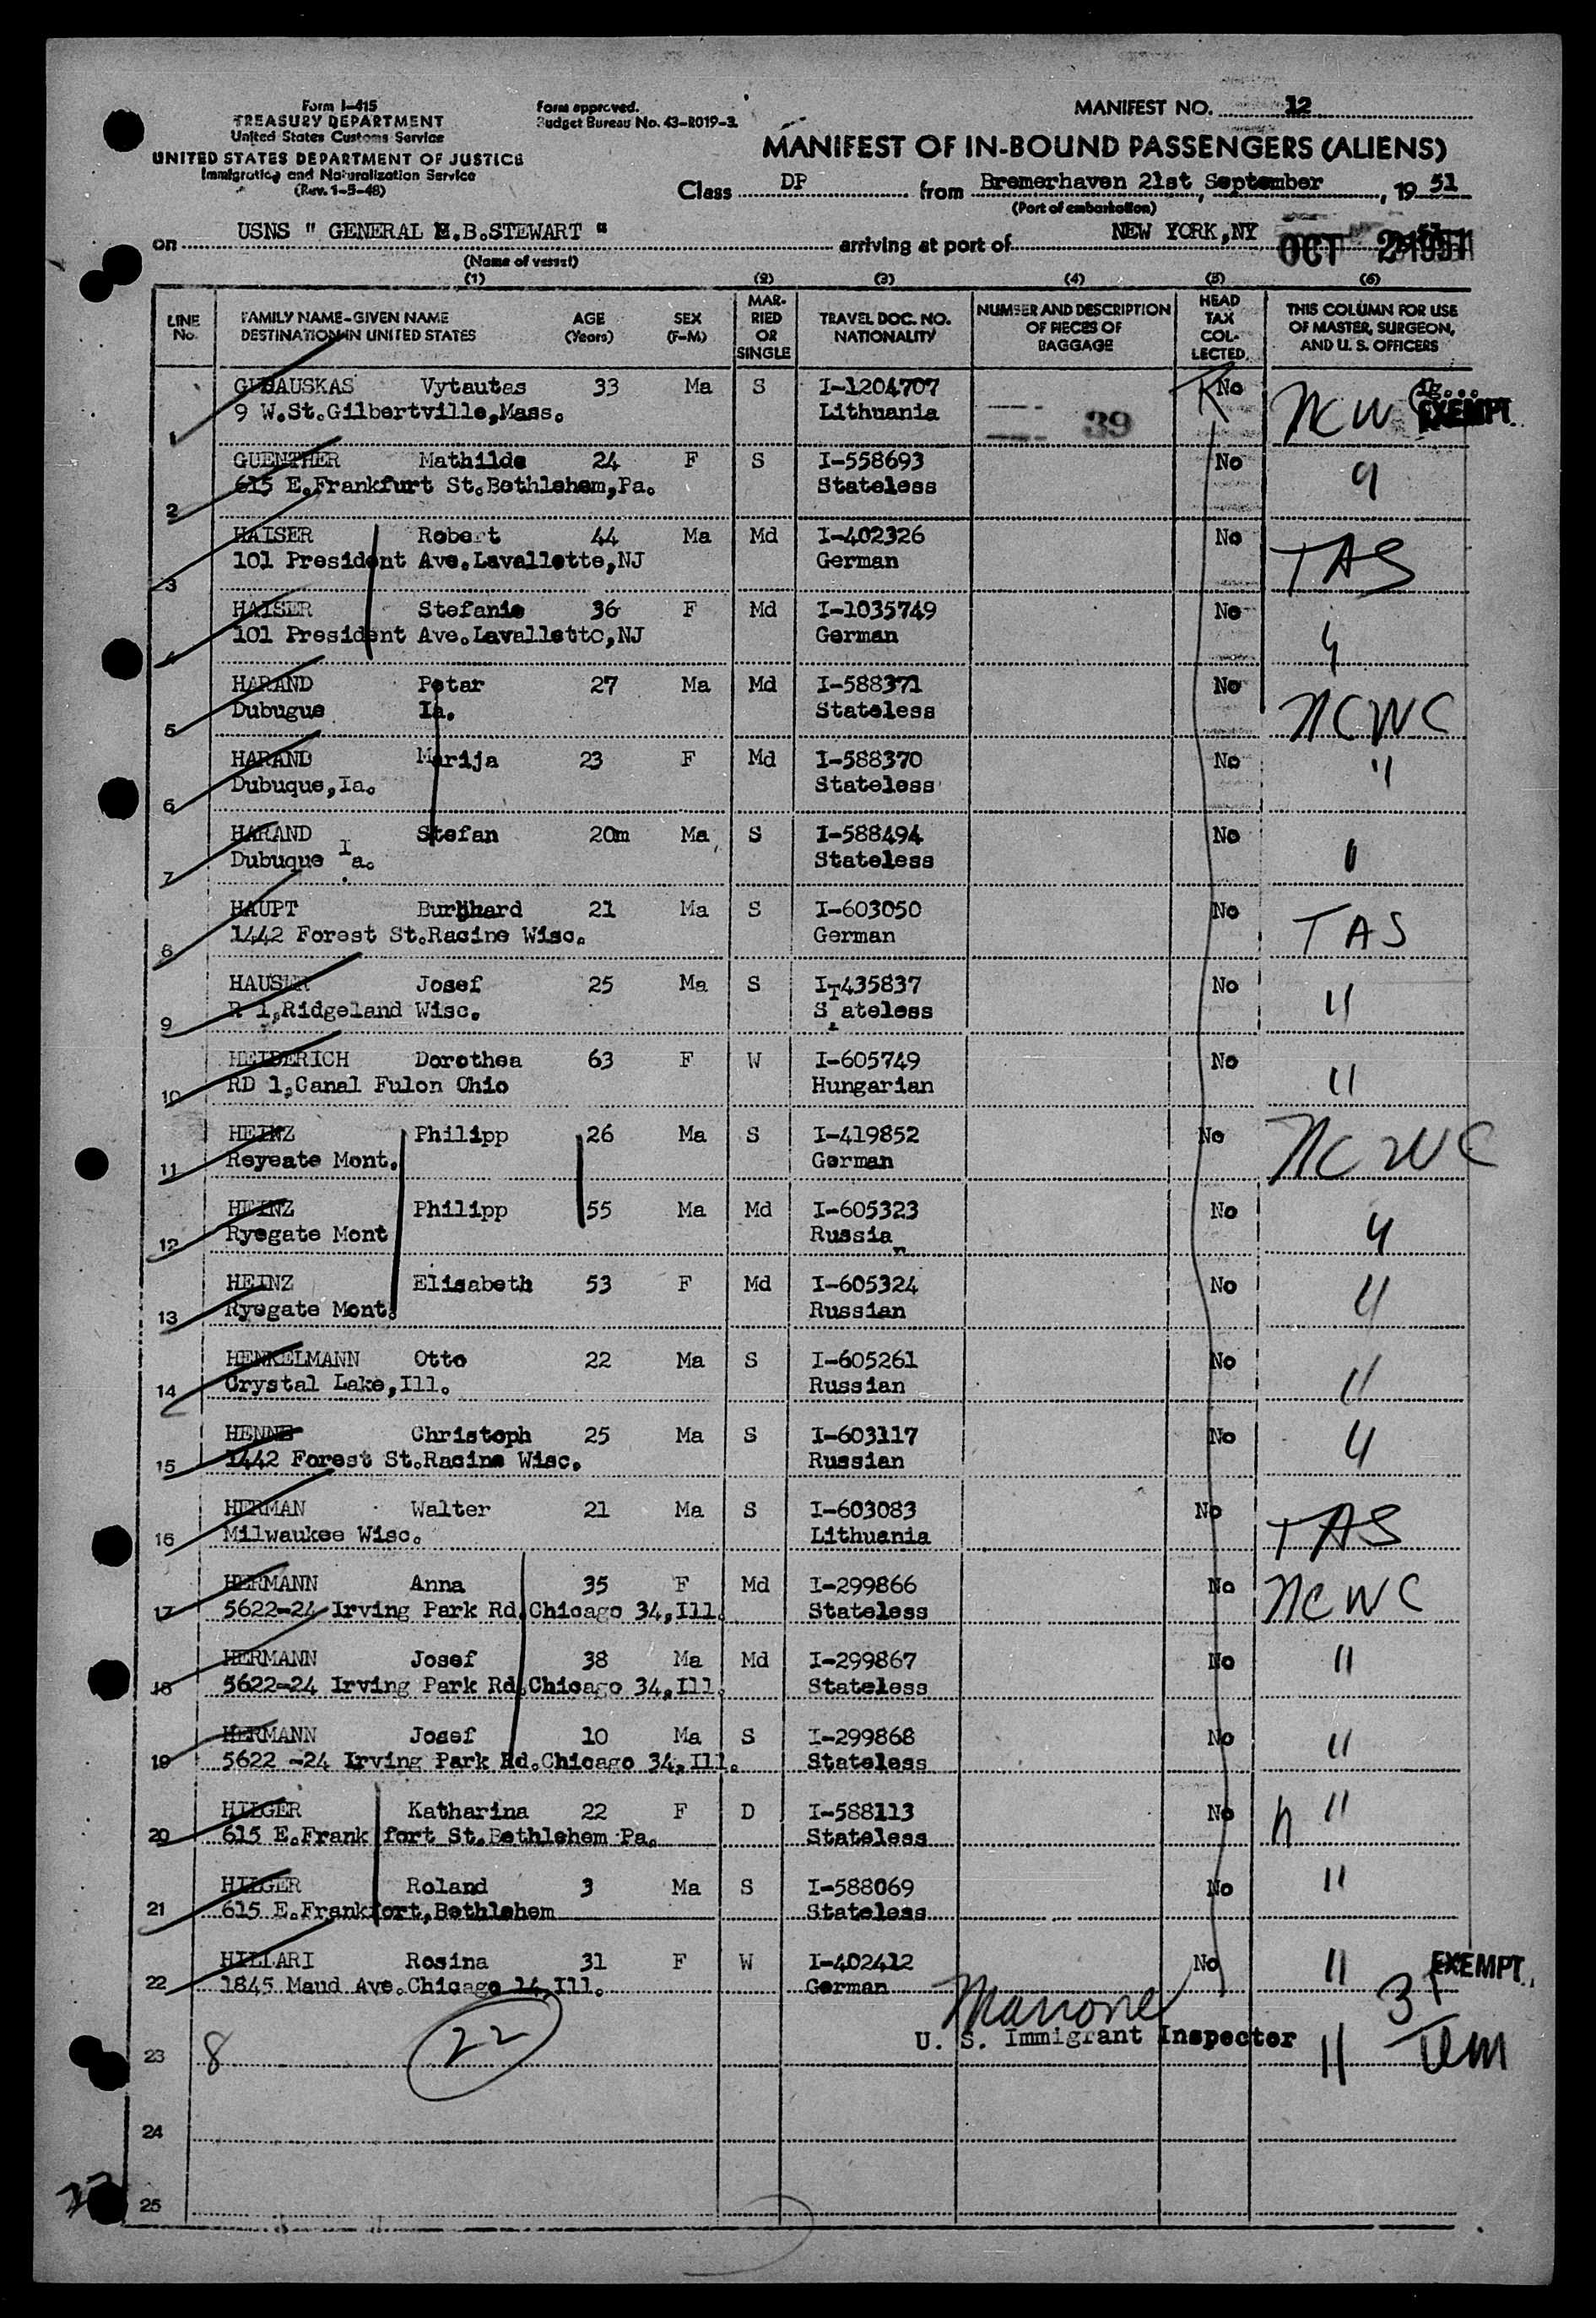 Form I-415
TREASURY DEPARTMENT
United States Customs Service
UNITED STATES DEPARTMENT OF JUSTICE
Immigration and Naturalization Service
(Rev. 1-5-48)
Form approved.
Budget Bureau No. 43-R019-3.
MANIFEST NO. 12
MANIFEST OF IN-BOUND PASSENGERS (ALIENS)
Class DP from Bremerhaven 21st September, 19 51
(Port of embarkation)
on USNS " GENERAL M.B.STEWART " arriving at port of NEW YORK,NY OCT 2 1951
(Name of vessel)
(1) (2) (3) (4) (5) (6)
LINE No. FAMILY NAME-GIVEN NAME DESTINATION IN UNITED STATES AGE (Years) SEX (F-M) MARRIED OR SINGLE TRAVEL DOC. NO. NATIONALITY NUMBER AND DESCRIPTION OF PIECES OF BAGGAGE HEAD TAX COLLECTED THIS COLUMN FOR USE OF MASTER, SURGEON, AND U. S. OFFICERS
Vytautas 33 Ma S I-1204707 No NCW EXEMPT
1 9 W.St.Gilbertville,Mass. Lithuania 39
GUENTHER Mathilde 24 F S I-558693 No "
2 615 E.Frankfurt St.Bethlehem,Pa. Stateless
HAISER Robert 44 Ma Md I-402326 No TAS
3 101 President Ave.Lavallette,NJ German
HAISER Stefanie 36 F Md I-1035749 No "
4 101 President Ave.Lavallette,NJ German
HARAND Petar 27 Ma Md I-588371 No NCWC
5 Dubugue Ia. Stateless
HARAND Marija 23 F Md I-588370 No "
6 Dubuque,Ia. Stateless
HARAND Stefan 20m Ma S I-588494 No "
7 Dubuque Ia. Stateless
HAUPT Burkhard 21 Ma S I-603050 No TAS
8 1442 Forest St.Racine Wisc. German
HAUSER Josef 25 Ma S I-435837 No "
9 R 1,Ridgeland Wisc. Stateless
HEIDERICH Dorothea 63 F W I-605749 No "
10 RD 1,Canal Fulon Ohio Hungarian
HEINZ Philipp 26 Ma S I-419852 No NCWC
11 Reyeate Mont. German
HEINZ Philipp 55 Ma Md I-605323 No "
12 Ryegate Mont Russian
HEINZ Elisabeth 53 F Md I-605324 No "
13 Ryegate Mont. Russian
HENKELMANN Otto 22 Ma S I-605261 No "
14 Crystal Lake,Ill. Russian
HENNE Christoph 25 Ma S I-603117 No "
15 1442 Forest St.Racine Wisc. Russian
HERMAN Walter 21 Ma S I-603083 No TAS
16 Milwaukee Wisc. Lithuania
HERMANN Anna 35 F Md I-299866 No NCWC
17 5622-24 Irving Park Rd.Chicago 34,Ill. Stateless
HERMANN Josef 38 Ma Md I-299867 No "
18 5622-24 Irving Park Rd.Chicago 34,Ill. Stateless
HERMANN Josef 10 Ma S I-299868 No "
19 5622 -24 Irving Park Rd.Chicago 34,Ill. Stateless
HILGER Katharina 22 F D I-588113 No "
20 615 E.Frankfort St.Bethlehem Pa. Stateless
HILGER Roland 3 Ma S I-588069 No "
21 615 E.Frankfort,Bethlehem Stateless
HILLARI Rosina 31 F W I-402412 No " EXEMPT
22 1845 Maud Ave.Chicago 14,Ill. German
U. S. Immigrant Inspector
23 8 22
24
25